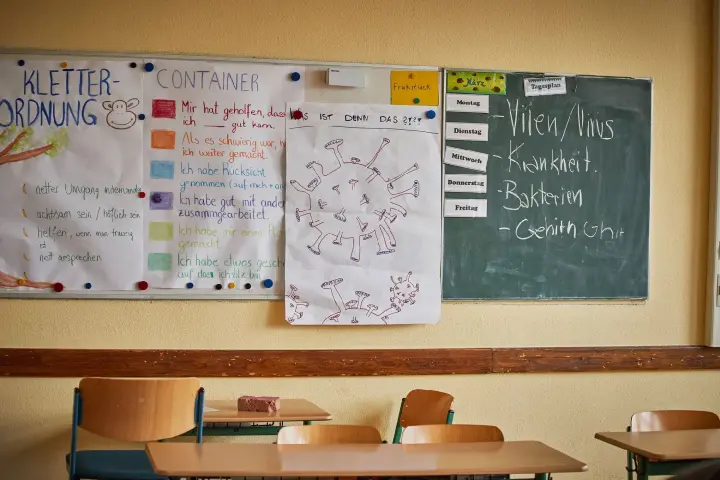 KLETTER-
ORDNUNG
netter Umgang miteinander
achtsam sein / höflich sein
helfen, wenn man traurig
ist
nett absprechen
CONTAINER
Mir hat geholfen, dass
ich ___ gut kann.
Als es schwierig war, h
ich weiter gemacht.
Ich habe Rücksicht
genommen (auf mich +
Ich habe gut mit ander
zusammengearbeitet.
Ich habe mir einen
gemacht.
Ich habe etwas gesch
auf das ich stolz bin
Frühstück
WAS IST DENN DAS ?!?!
März
Tagesplan
Montag
Dienstag
Mittwoch
Donnerstag
Freitag
- Viien/Virus
- Krankheit.
- Bakterien